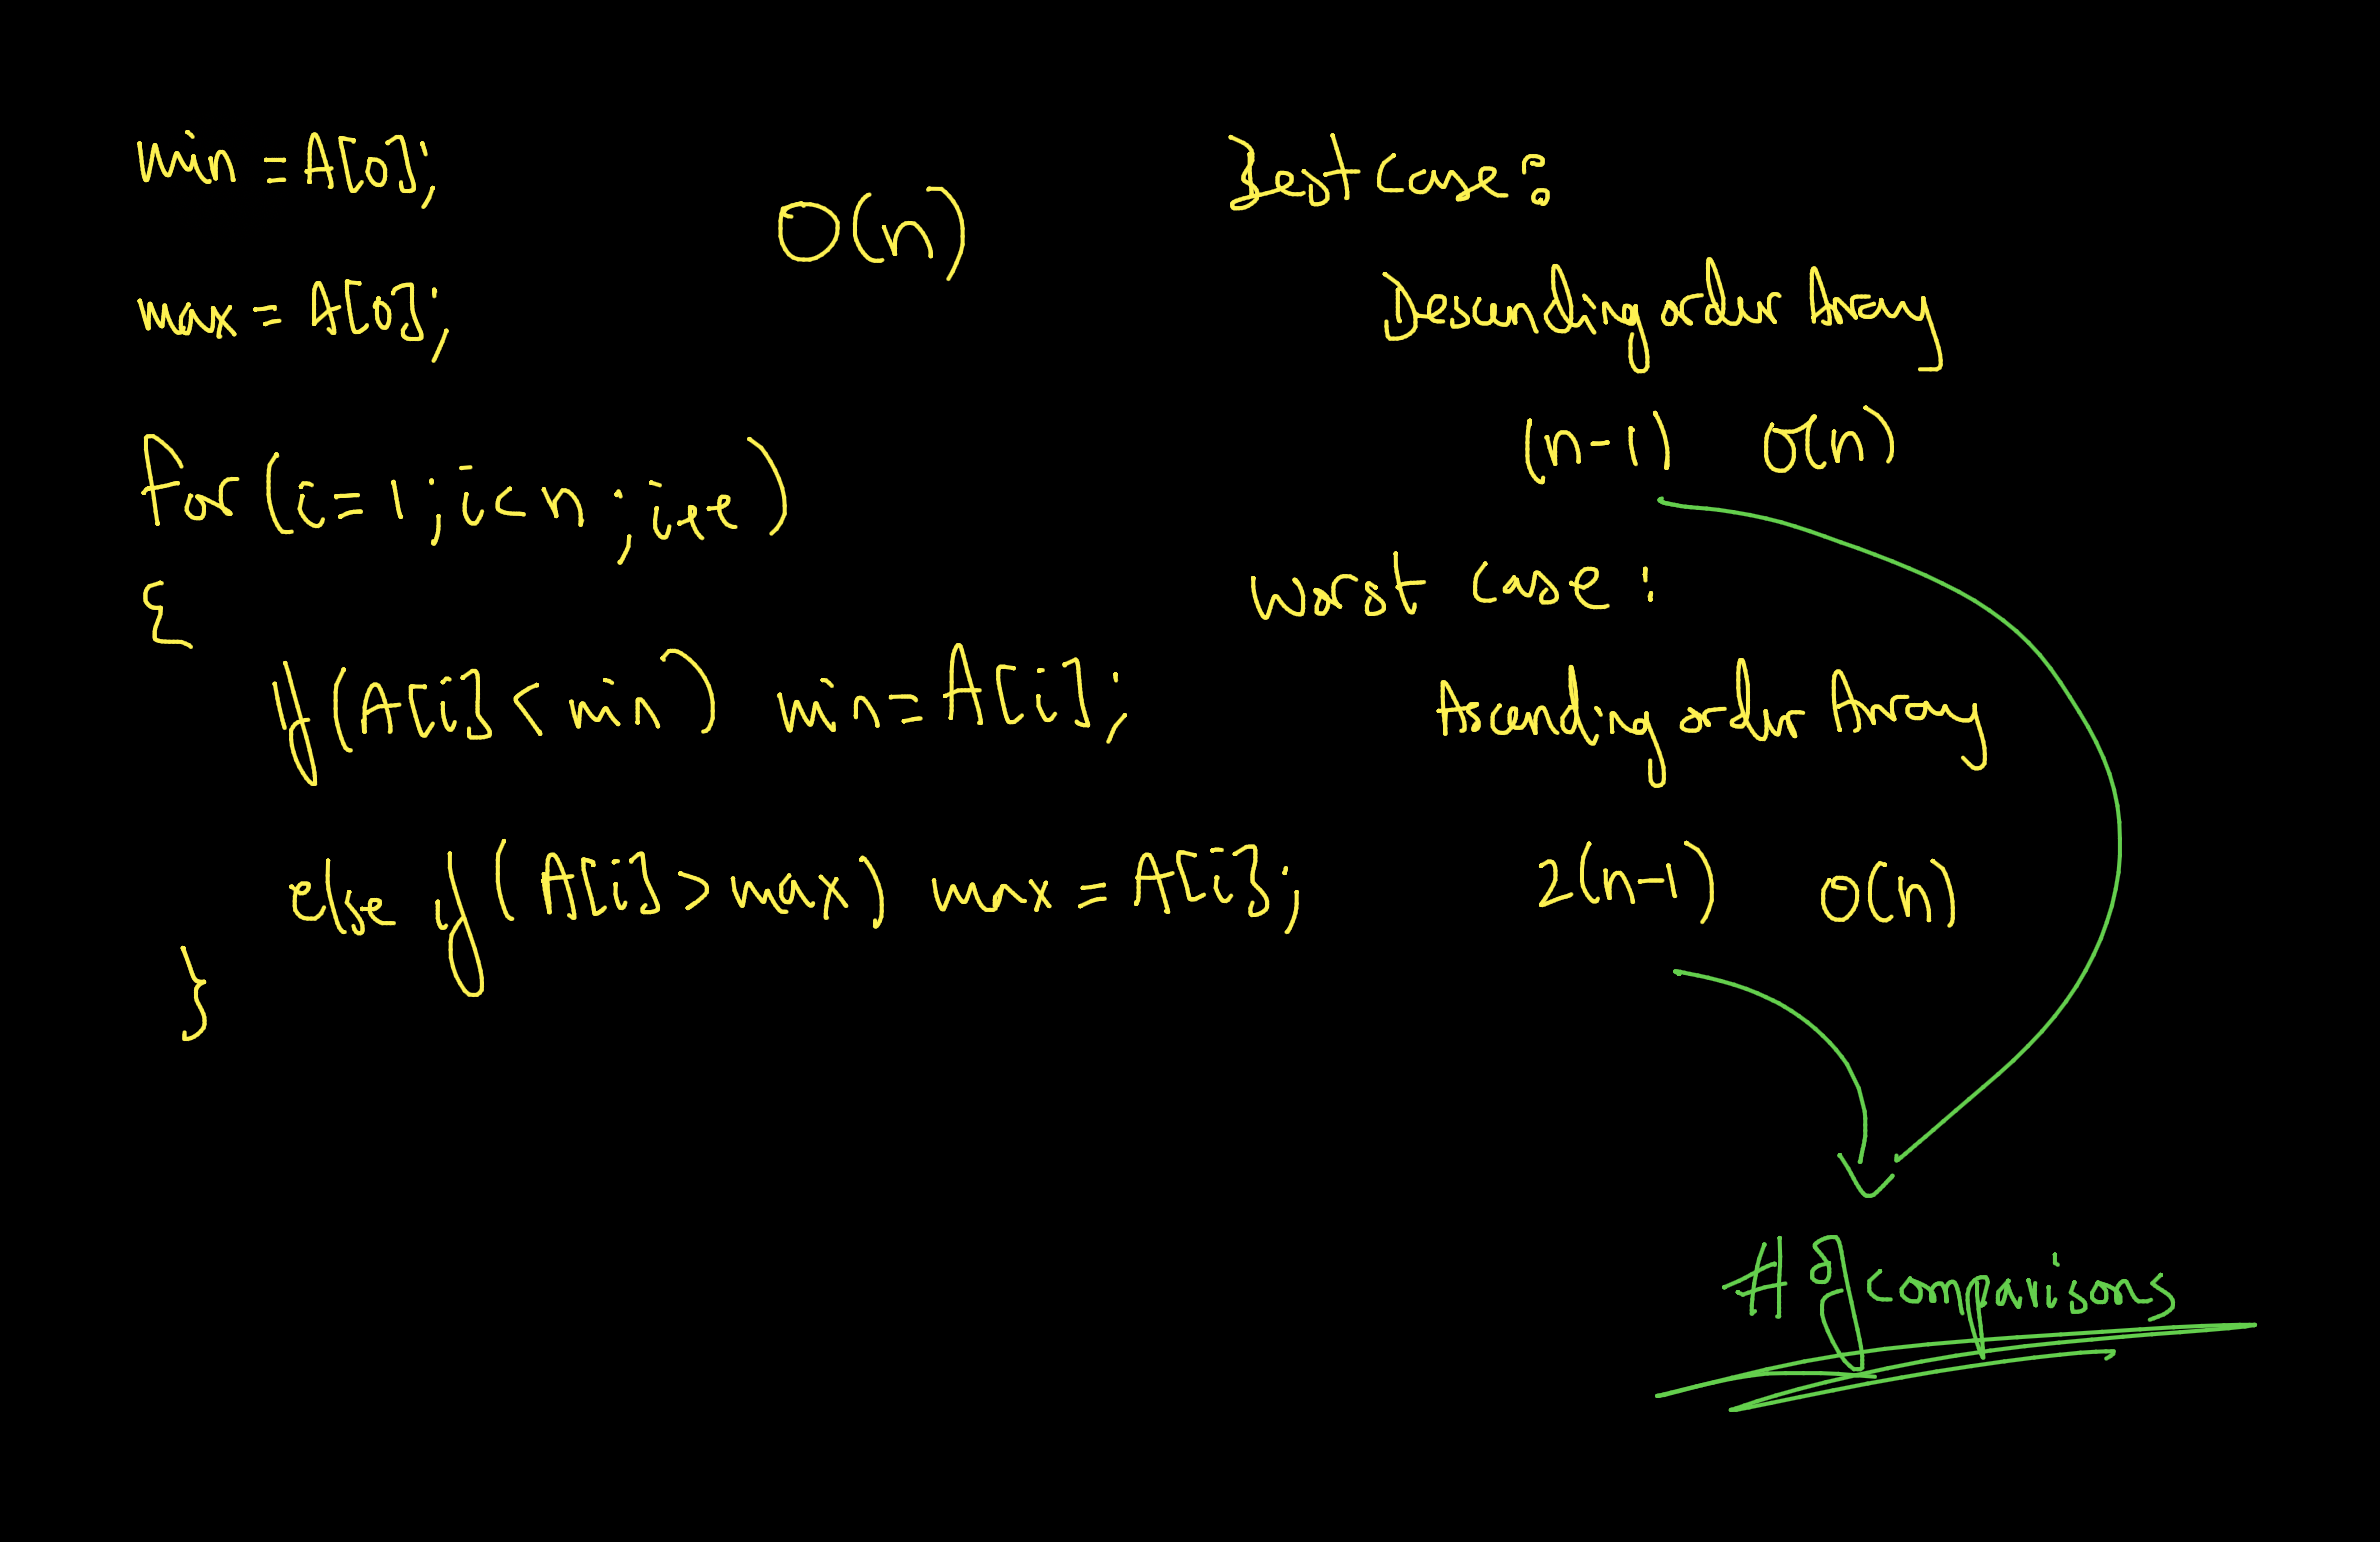 min = A[0];
max = A[0];
O(n)
for (i=1; i<n; i++)
{
if (A[i] < min) min = A[i];
else if (A[i] > max) max = A[i];
}
Best case:
Descending order Array
(n-1) O(n)
Worst case:
Ascending order Array
2(n-1) O(n)
# of comparisons